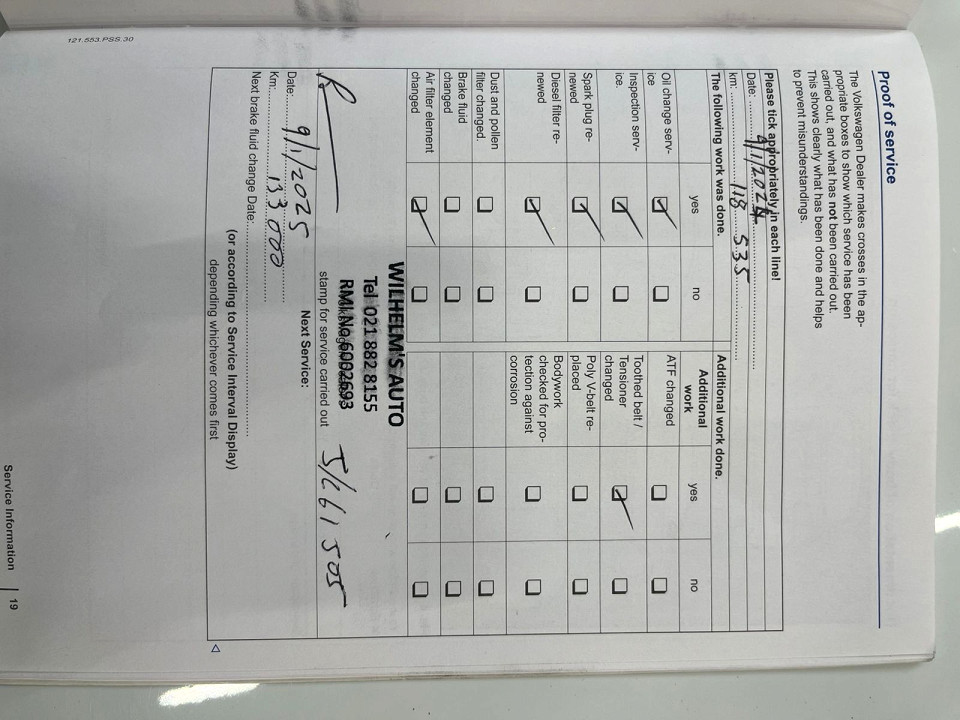 Proof of service
The Volkswagen Dealer makes crosses in the ap-
propriate boxes to show which service has been
carried out, and what has not been carried out.
This shows clearly what has been done and helps
to prevent misunderstandings.
Please tick appropriately in each line!
Date: 9/1/2024
km: 118 535
The following work was done.
yes
no
Oil change serv-
ice
Inspection serv-
ice.
Spark plug re-
newed
Diesel filter re-
newed
Dust and pollen
filter changed.
Brake fluid
changed
Air filter element
changed
Additional work done.
Additional
work
yes
no
ATF changed
Toothed belt /
Tensioner
changed
Poly V-belt re-
placed
Bodywork
checked for pro-
tection against
corrosion
WILHELM'S AUTO
Tel 021 882 8155
RMI No 6002693
stamp for service carried out
Next Service:
Date: 9/1/2025
Km: 133 000
Next brake fluid change Date:
(or according to Service Interval Display)
depending whichever comes first
Service Information | 19
121.553.PSS.30